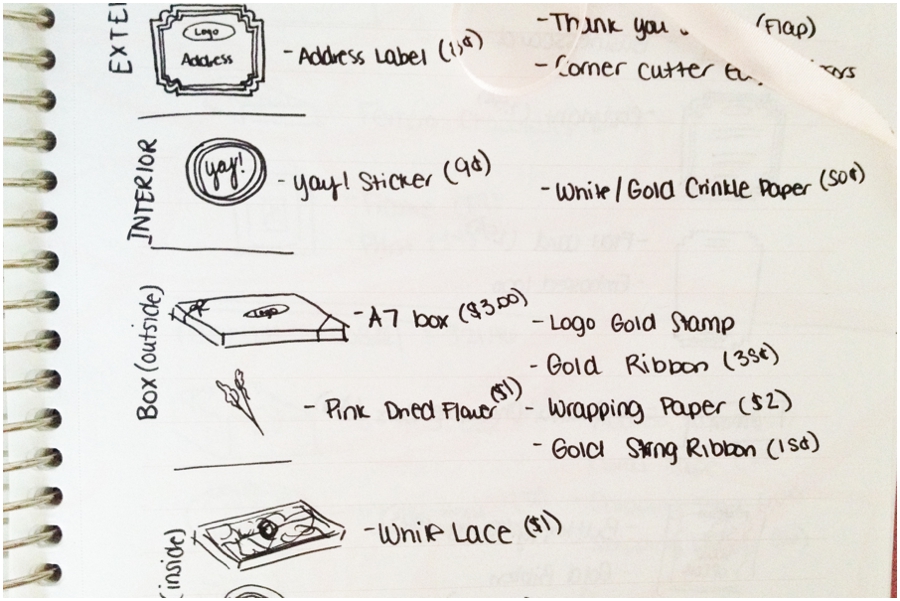 EXTE
Logo
Address
- Address Label (15¢)
- Thank you (Flap)
- Corner cutter
INTERIOR
yay!
- yay! Sticker (9¢)
- White/Gold Crinkle Paper (50¢)
Box (outside)
Logo
- A7 box ($3.00)
- Logo Gold Stamp
- Gold Ribbon (35¢)
- Pink Dried Flower ($1)
- Wrapping Paper ($2)
- Gold String Ribbon (15¢)
(inside)
- White Lace ($1)